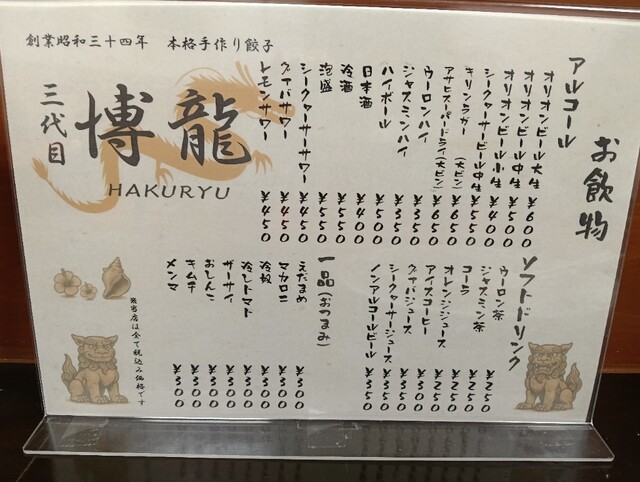 お飲物
アルコール
オリオンビール大生 ¥600
オリオンビール中生 ¥500
オリオンビール小生 ¥400
シークァーサービール中生 ¥550
キリンラガー(大ビン) ¥650
アサヒスーパードライ(大ビン) ¥650
ウーロンハイ ¥350
ジャスミンハイ ¥350
ハイボール ¥500
日本酒 ¥400
冷酒 ¥550
泡盛 ¥550
シークァーサーサワー ¥450
グァバサワー ¥450
レモンサワー ¥450
ソフトドリンク
ウーロン茶 ¥250
ジャスミン茶 ¥250
コーラ ¥250
オレンジジュース ¥250
アイスコーヒー ¥250
グァバジュース ¥350
シークァーサージュース ¥350
ノンアルコールビール ¥350
一品(おつまみ)
えだまめ ¥300
マカロニ ¥300
冷奴 ¥300
冷しトマト ¥300
ザーサイ ¥300
おしんこ ¥300
キムチ ¥300
メンマ ¥300
創業昭和三十四年 本格手作り餃子
三代目
博龍
HAKURYU
※当店は全て税込み価格です